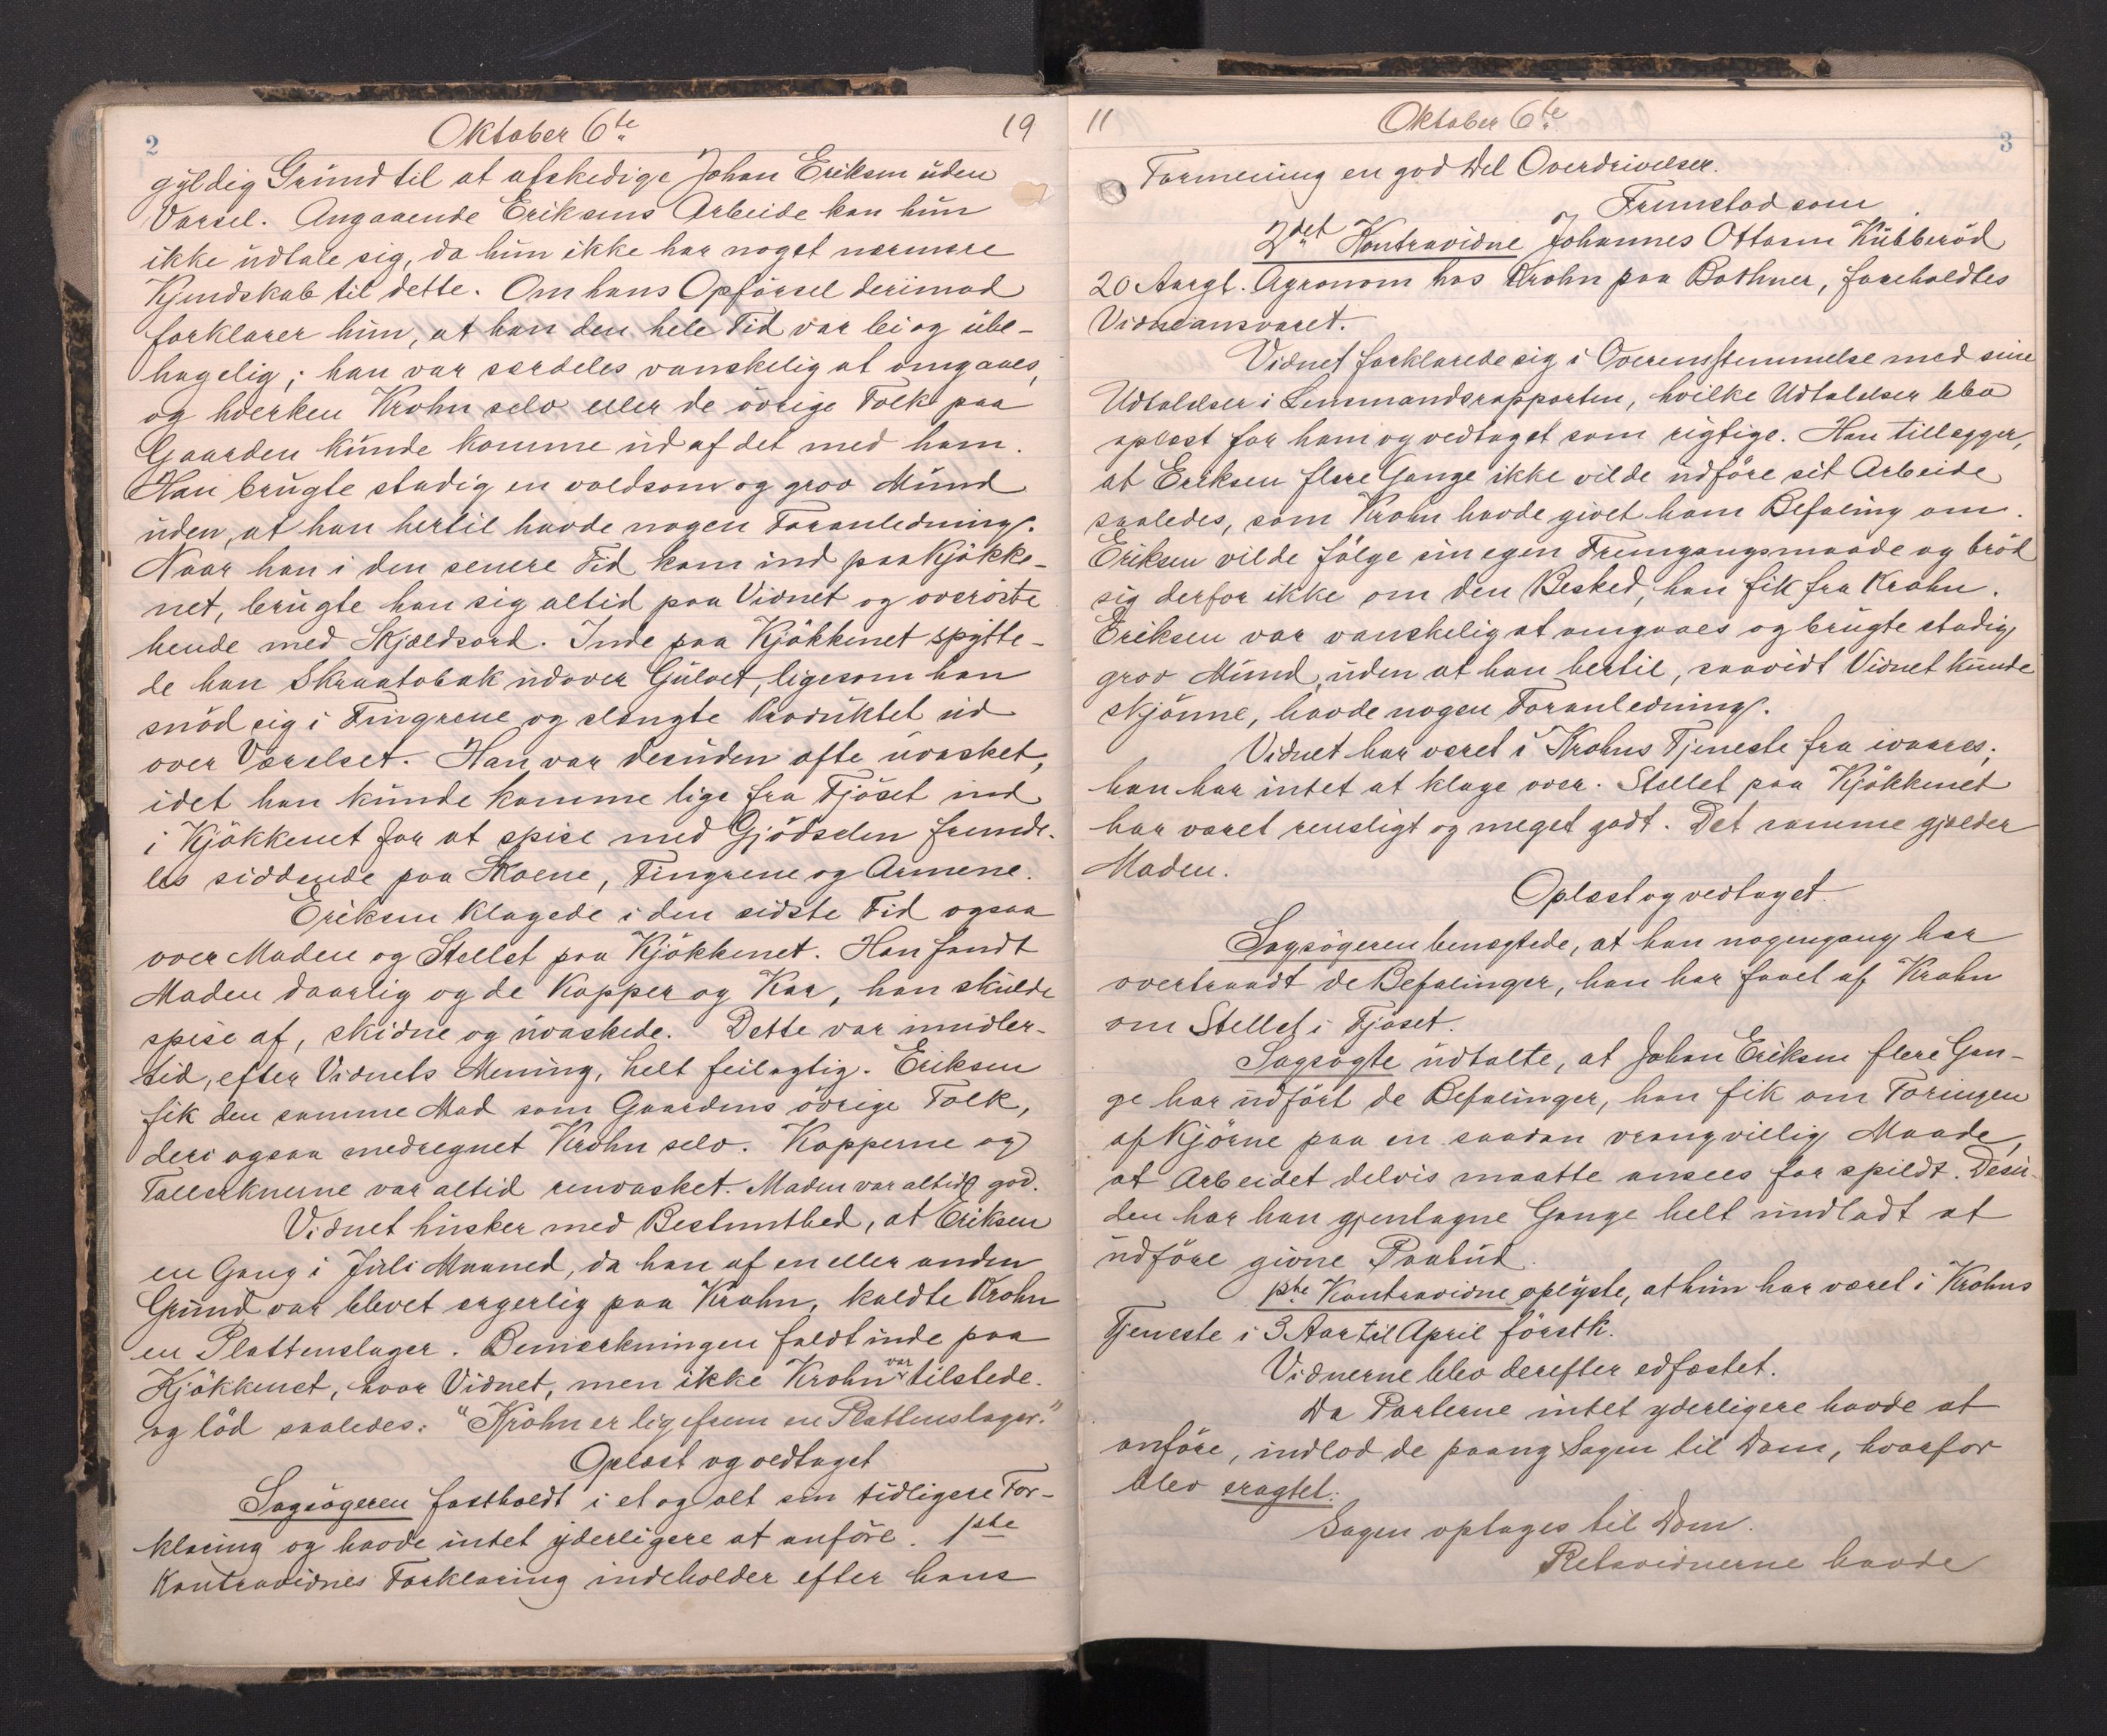 2
Oktober 6te
19
gyldig Grund til at afskedige Johan Eriksen uden
Varsel. Angaaende Eriksens Arbeide kan hun
ikke udtale sig, da hun ikke har noget nærmere
Kjendskab til dette. Om hans Opförsel derimod
forklarer hun, at han den hele Tid var lei og ube-
hagelig; han var særdeles vanskelig at omgaaes,
og hverken Krohn selv eller de övrige Folk paa
Gaarden kunde komme ud af det med ham.
Han brugte stadig en voldsom og grov Mund
uden, at han hertil havde nogen Foranledning.
Naar han i den senere Tid kom ind paa Kjökke-
net, brugte han sig altid paa Vidnet og overöste
hende med Skjældsord. Inde paa Kjökkenet spytte-
de han Skraatobak udover Gulvet, ligesom han
snöd sig i Fingrene og slængte Produktet ud
over Værelset. Han var desuden ofte uvasket,
idet han kunde komme lige fra Fjöset ind
i Kjökkenet for at spise med Gjödselen fremde-
les siddende paa Skoene, Fingrene og Armene.
Eriksen klagede i den sidste Tid ogsaa
over Maden og Stellet paa Kjökkenet. Han fandt
Maden daarlig og de Kopper og Kar, han skulde
spise af, skidne og uvaskede. Dette var imidler-
tid, efter Vidnets Mening, helt feilagtig. Eriksen
fik den samme Mad som Gaardens övrige Folk,
deri ogsaa medregnet Krohn selv. Kopperne og
Tallerknerne var altid renvasket. Maden var altid god.
Vidnet husker med Bestemthed, at Eriksen
en Gang i Juli Maaned, da han af en eller anden
Grund var blevet ærgerlig paa Krohn, kaldte Krohn
en Plattenslager. Bemærkningen faldt inde paa
Kjökkenet, hvor Vidnet, men ikke Krohn var tilstede.
og löd saaledes: "Krohn er ligefrem en Plattenslager."
Oplæst og vedtaget
Sagsögeren fastholdt i et og alt sin tidligere For-
klaring og havde intet yderligere at anföre. 1ste
Kontravidnes Forklaring indeholder efter hans
11
Oktober 6te
3
Formening en god Del Overdrivelser.
Fremstod som
2det Kontravidne Johannes Ottosen Kubberöd
20 Aargl. Agronom hos Krohn paa Bothner, foreholdtes
Vidneansvaret.
Vidnet forklarede sig i Overensstemmelse med sine
Udtalelser i Lensmandsrapporten, hvilke Udtalelser blev
oplæst for ham og vedtaget som rigtige. Han tillægger,
at Eriksen flere Gange ikke vilde udföre sit Arbeide
saaledes, som Krohn havde givet ham Befaling om.
Eriksen vilde fölge sin egen Fremgangsmaade og bröd
sig derfor ikke om den Besked, han fik fra Krohn.
Eriksen var vanskelig at omgaaes og brugte stadig
grov Mund, uden at han hertil, saavidt Vidnet kunde
skjönne, havde nogen Foranledning.
Vidnet har været i Krohns Tjeneste fra ivaares;
han har intet at klage over. Stellet paa Kjökkenet
har været rensligt og meget godt. Det samme gjælder
Maden.
Oplæst og vedtaget.
Sagsögeren benægtede, at han nogengang har
overtraadt de Befalinger, han har faaet af Krohn
om Stellet i Fjöset.
Sagsögte udtalte, at Johan Eriksen flere Gan-
ge har udfört de Befalinger, han fik om Foringen
af Kjörne paa en saadan vrangvillig Maade,
at Arbeidet delvis maatte ansees for spildt. Desu-
den har han gjentagne Gange helt undladt at
udföre givne Paabud.
1ste Kontravidne oplyste, at hun har været i Krohns
Tjeneste i 3 Aar til April förstk.
Vidnerne blev derefter edfæstet.
Da Parterne intet yderligere havde at
anföre, indlod de paany Sagen til Dom, hvorfor
blev eragtet:
Sagen optages til Dom.
Retsvidnerne havde